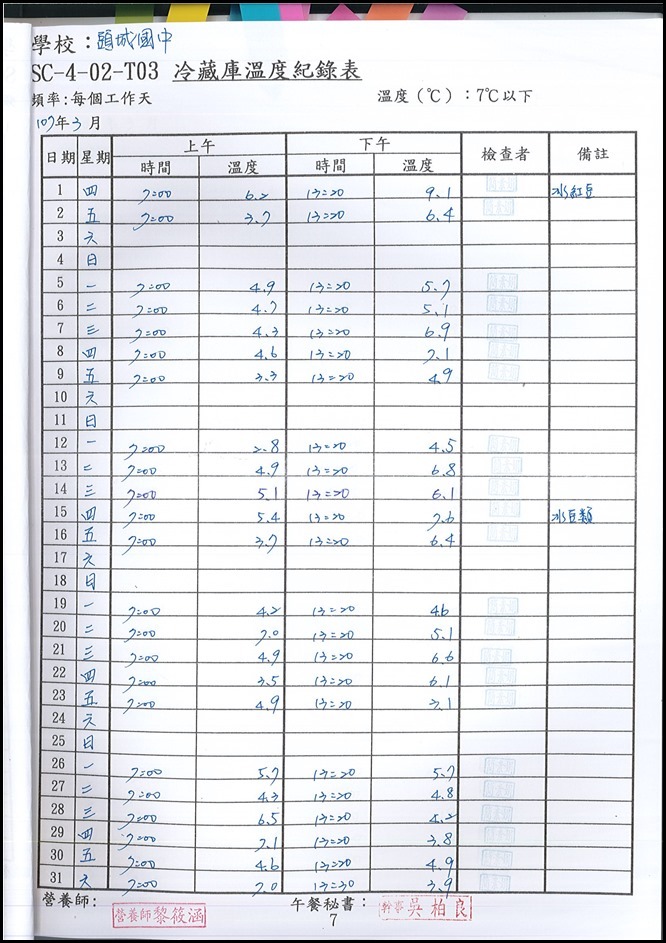 學校：頭城國中
SC-4-02-T03 冷藏庫溫度紀錄表
頻率:每個工作天 溫度(℃)：7℃以下
107年3月
日期 星期 上午 下午 檢查者 備註
時間 溫度 時間 溫度
1 四 7:00 6.2 13:20 9.1 冰紅豆
2 五 7:00 3.7 13:20 6.4
3 六
4 日
5 一 7:00 4.9 13:20 5.7
6 二 7:00 4.7 13:20 5.1
7 三 7:00 4.3 13:20 6.9
8 四 7:00 4.6 13:20 7.1
9 五 7:00 3.3 13:20 4.9
10 六
11 日
12 一 7:00 2.8 13:20 4.5
13 二 7:00 4.9 13:20 6.8
14 三 7:00 5.1 13:20 6.1
15 四 7:00 5.4 13:20 7.6 冰豆類
16 五 7:00 3.7 13:20 6.4
17 六
18 日
19 一 7:00 4.2 13:20 4.6
20 二 7:00 7.0 13:20 5.1
21 三 7:00 4.9 13:20 6.6
22 四 7:00 3.5 13:20 6.1
23 五 7:00 4.9 13:20 3.1
24 六
25 日
26 一 7:00 5.7 13:20 5.7
27 二 7:00 4.3 13:20 4.8
28 三 7:00 6.5 13:20 4.2
29 四 7:00 7.1 13:20 3.8
30 五 7:00 4.6 13:20 4.9
31 六 7:00 7.0 13:30 3.9
營養師: 營養師黎筱涵 午餐秘書： 幹事吳柏良
7